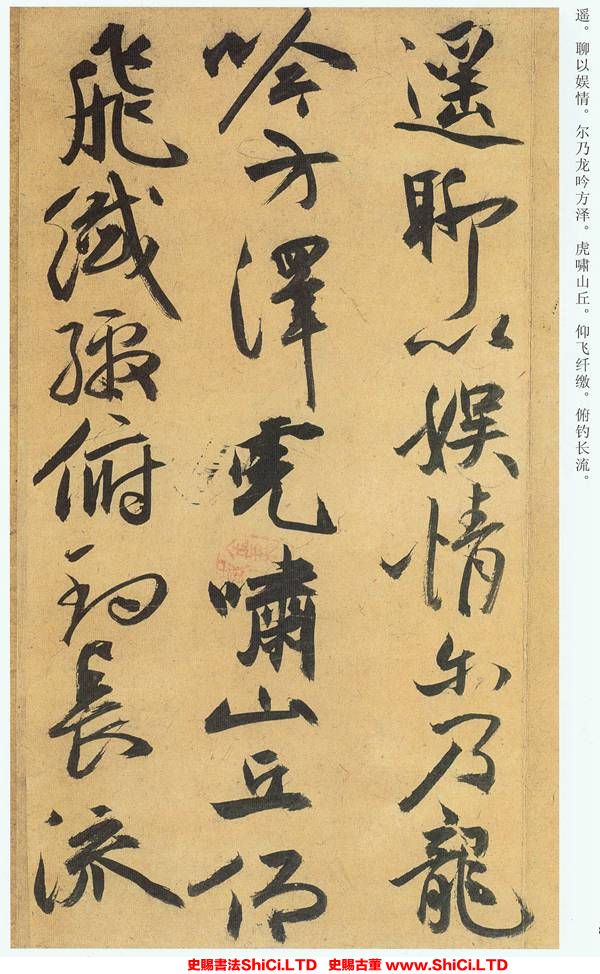 遥。聊以娱情。尔乃龙吟方泽。虎啸山丘。仰飞纤缴。俯钓长流。
遙聊以娛情尔乃龍
吟方澤虎嘯山丘仰
飛纖繳俯釣長流
史賜書法ShiCi.LTD 史賜古董 www.ShiCi.LTD